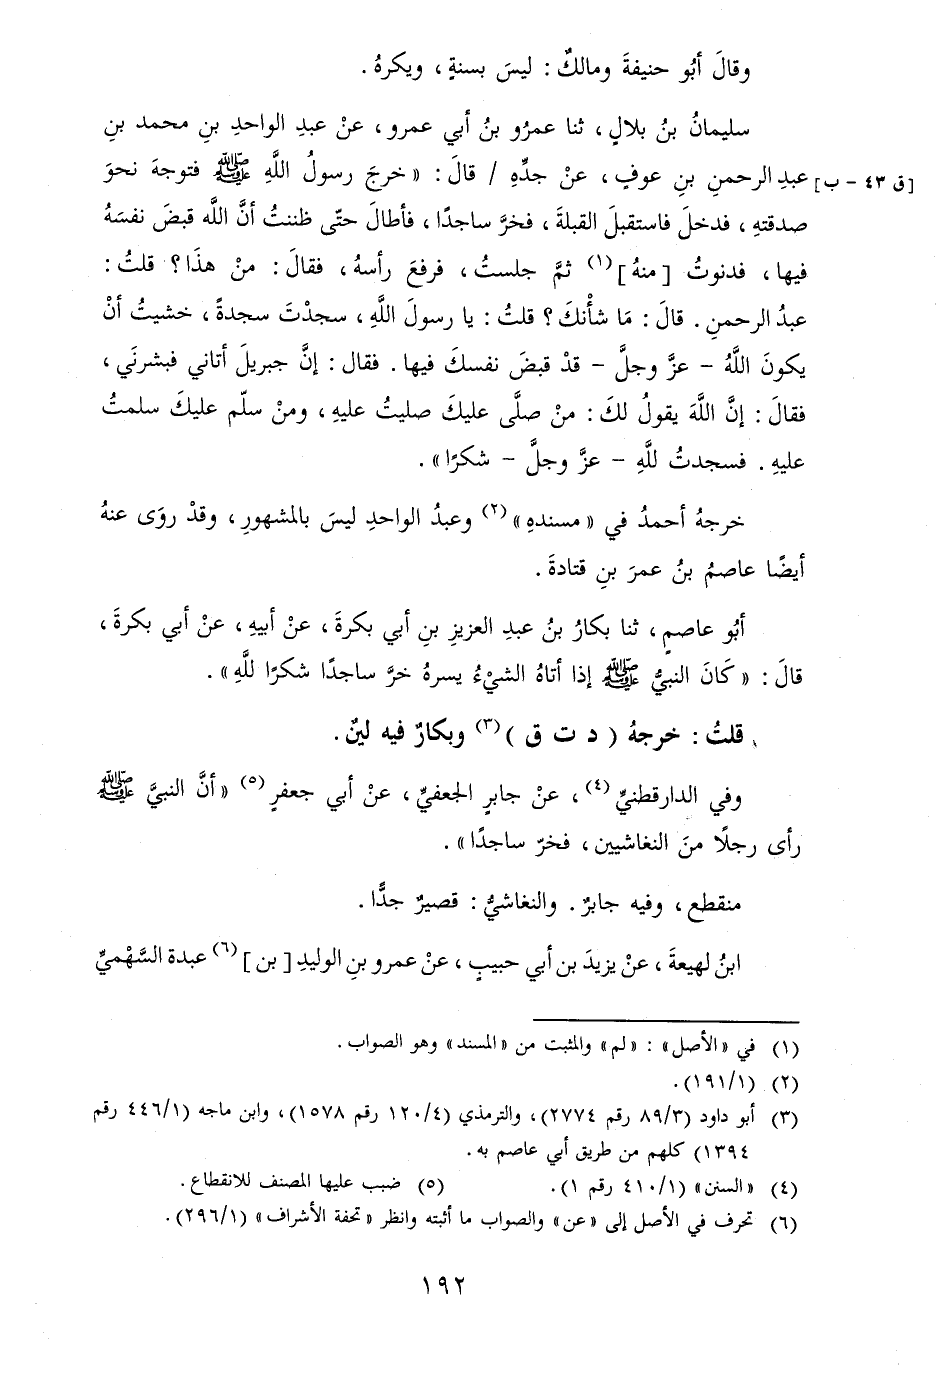 وقالَ أبُو حنيفةَ ومالكٌ : ليسَ بسنةٍ ، ويكرهُ .
سليمانُ بنُ بلالٍ ، ثنا عمرُو بنُ أبي عمرو ، عنْ عبدِ الواحدِ بنِ محمد بنِ
[ق ٤٣ - ب] عبد الرحمنِ بنِ عوفٍ ، عنْ جدِّهِ / قالَ : « خرجَ رسولُ اللَّهِ ﷺ فتوجهَ نحوَ
صدقتهِ ، فدخلَ فاستقبلَ القبلةَ ، فخرَّ ساجدًا ، فأطالَ حتّى ظننتُ أنَّ اللَّه قبضَ نفسَهُ
فيها ، فدنوتُ [ منهُ ](١) ثمَّ جلستُ ، فرفعَ رأسهُ ، فقالَ : منْ هذَا ؟ قلتُ :
عبدُ الرحمنِ . قالَ : مَا شأْنكَ ؟ قلتُ : يا رسولَ اللَّهِ ، سجدْتَ سجدةً ، خشيتُ أنْ
يكونَ اللَّهُ - عزَّ وجلَّ - قدْ قبضَ نفسكَ فيها . فقال : إنَّ جبريلَ أتاني فبشرنَي ،
فقالَ : إنَّ اللَّهَ يقولُ لكَ : منْ صلَّى عليكَ صليتُ عليهِ ، ومنْ سلّم عليكَ سلمتُ
عليهِ . فسجدتُ للَّهِ - عزَّ وجلَّ - شكرًا » .
خرجهُ أحمدُ في « مسندهِ »(٢) وعبدُ الواحدِ ليسَ بالمشهورِ ، وقدْ روَى عنهُ
أيضًا عاصمُ بنُ عمرَ بنِ قتادةَ .
أبُو عاصمٍ ، ثنا بكارُ بنُ عبدِ العزيزِ بنِ أبي بكرةَ ، عنْ أبيهِ ، عنْ أبي بكرةَ ،
قالَ : « كَانَ النبيُّ ﷺ إذا أتاهُ الشيْءُ يسرهُ خرَّ ساجدًا شكرًا للَّهِ » .
قلتُ : خرجهُ ( د ت ق )(٣) وبكارٌ فيه لينٌ .
وفي الدارقطنيِّ(٤) ، عنْ جابرِ الجعفيِّ ، عنْ أبي جعفرٍ(٥) « أنَّ النبيَّ ﷺ
رأى رجلًا منَ النغاشيين ، فخرّ ساجدًا » .
منقطع ، وفيه جابرٌ . والنغاشيُّ : قصيرٌ جدًّا .
ابنُ لهيعةَ ، عنْ يزيدَ بن أبي حبيبٍ ، عنْ عمرو بنِ الوليدِ [ بن ](٦) عبدة السَّهْميِّ
(١) في «الأصل» : «لم» والمثبت من «المسند» وهو الصواب .
(٢) (١٩١/١).
(٣) أبو داود (٨٩/٣ رقم ٢٧٧٤)، والترمذي (١٢٠/٤ رقم ١٥٧٨)، وابن ماجه (٤٤٦/١ رقم
١٣٩٤) كلهم من طريق أبي عاصم به .
(٤) «السنن» (٤١٠/١ رقم ١). (٥) ضبب عليها المصنف للانقطاع .
(٦) تحرف في الأصل إلى «عن» والصواب ما أثبته وانظر «تحفة الأشراف» (٢٩٦/١).
١٩٢